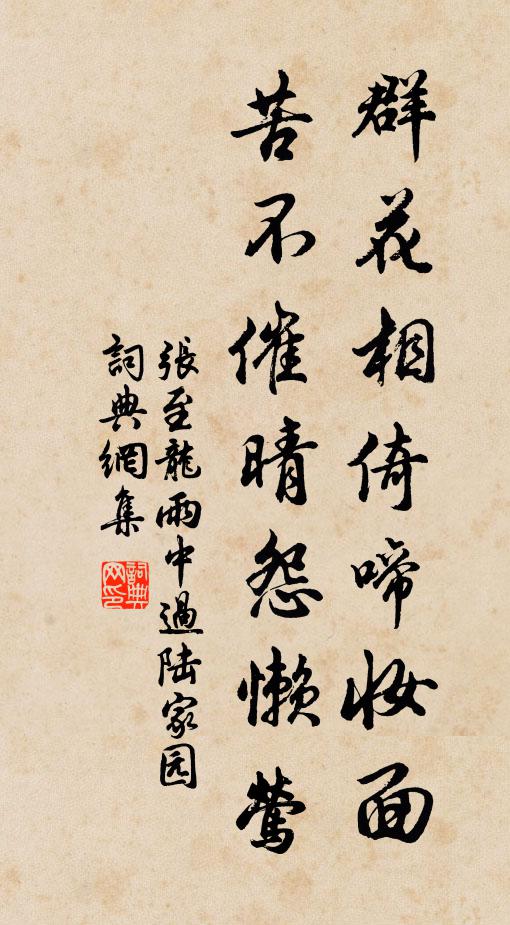 群花相倚啼妆面
苦不催晴怨懒莺
張至龍雨中過陆家园
詞典網集
詞典网印